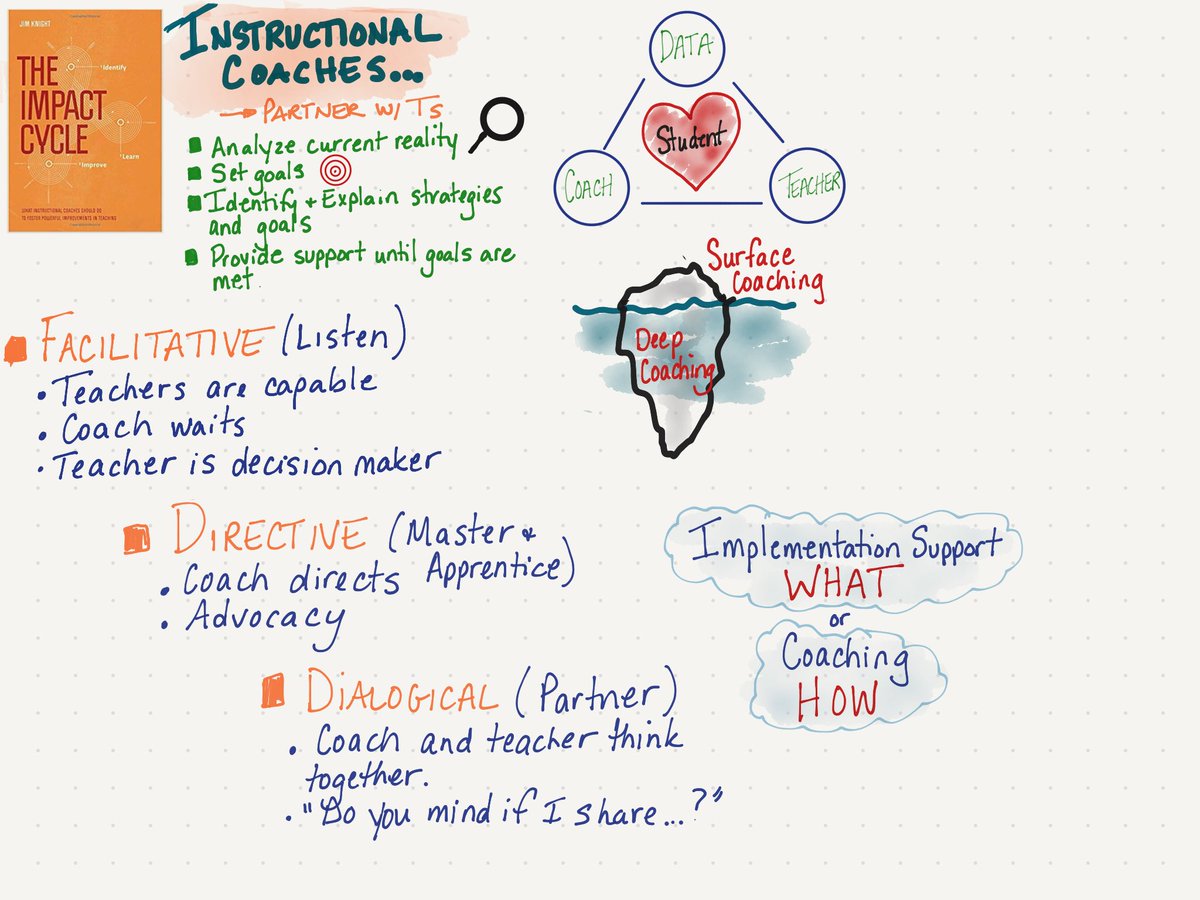 JIM KNIGHT
THE
IMPACT
CYCLE
Identify
Learn
Improve
WHAT INSTRUCTIONAL COACHES SHOULD DO
TO FOSTER POWERFUL IMPROVEMENTS IN TEACHING
INSTRUCTIONAL
COACHES...
→ PARTNER W/ Ts
Analyze current reality
Set goals
Identify + Explain strategies
and goals
Provide support until goals are
met.
DATA
Student
COACH
TEACHER
Surface
Coaching
Deep
Coaching
FACILITATIVE (Listen)
• Teachers are capable
• Coach waits
• Teacher is decision maker
DIRECTIVE (Master +
Apprentice)
• Coach directs
• Advocacy
DIALOGICAL (Partner)
• Coach and teacher think
together.
• "Do you mind if I share...?"
Implementation Support
WHAT
or
Coaching
HOW